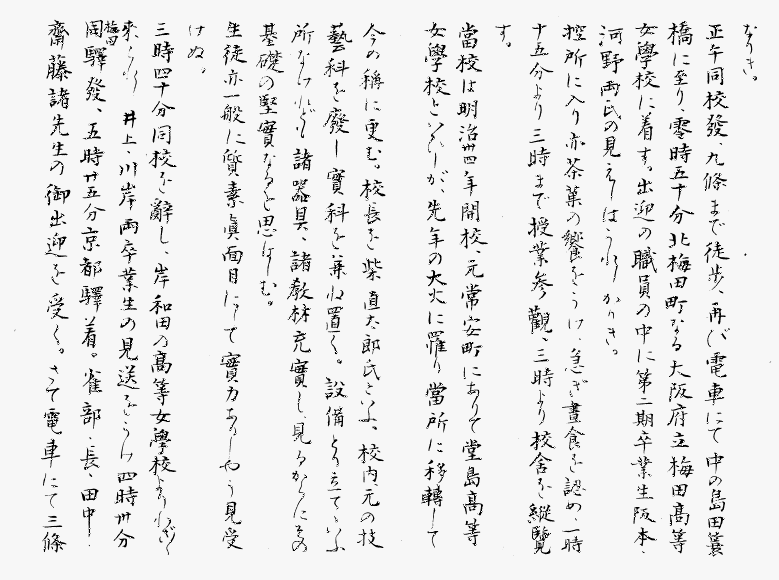 なりき。
正午同校發、九條まで徒歩、再び電車にて中の島田簑
橋に至り、零時五十分北梅田町なる大阪府立梅田高等
女學校に着す。出迎の職員の中に第二期卒業生阪本・
河野両氏の見えしはうれしかりき。
控所に入り亦茶菓の饗をうけ、急ぎ晝食を認め、一時
十五分より三時まで授業参觀、三時より校舎を縦覽
す。
當校は明治卅四年開校、元常安町にありて堂島高等
女學校といひしが、先年の大火に罹り當所に移轉して
今の稱に更む。校長を柴直太郎氏といふ、校内元の技
藝科を廢し實科を兼ね置く。設備とり立てていふ
所なけれども、諸器具、諸教材充實し、見るからにその
基礎の堅實なるを思はしむ。
生徒亦一般に質素眞面目にして實力あるやう見受
けぬ。
三時四十分同校を辭し、岸和田の高等女學校よりわざわざ
來られし井上・川岸両卒業生の見送をうけ四時卅分
梅田驛發、五時廿五分京都驛着。雀部・長・田中・
齋藤諸先生の御出迎を受く。さて電車にて三條